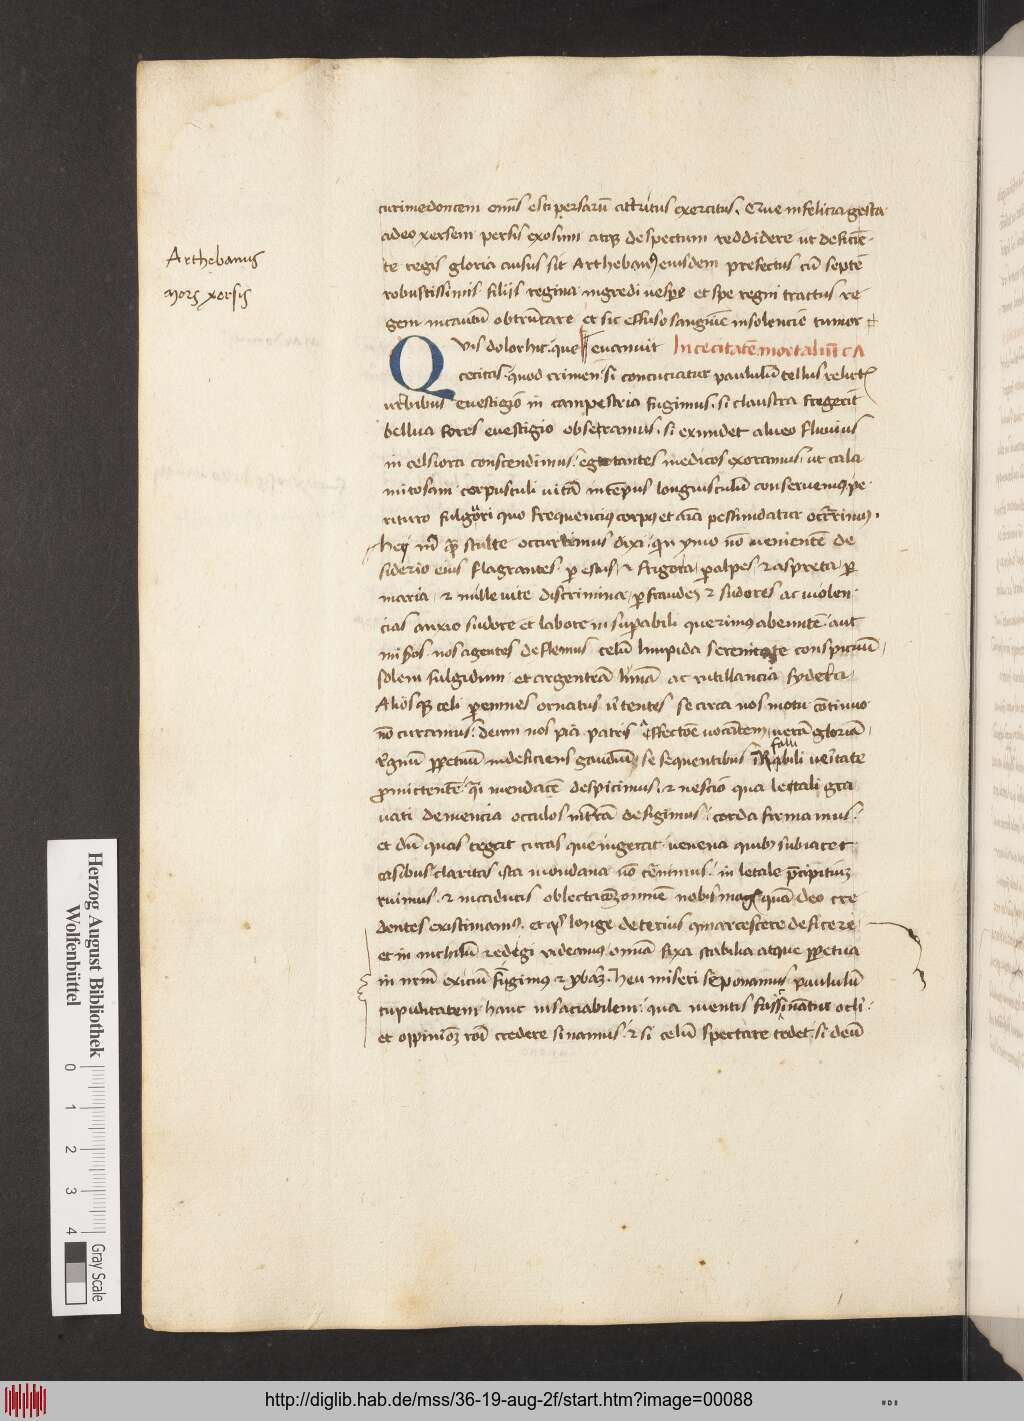 Arthebanus
Mors xersis
curimedontem omnis est persarum attritus exercitus. Que infelicia gesta
adeo xersem persis exosum atque despectum reddidere ut deficien
te regis gloria ausus sit Arthebanus eiusdem prefectus cum septem
robustissimis filijs regina ingredi vespe et spe regni tractus re
gem incautum obtruncare et sic effuso sanguine insolencie tumor
evanuit In cecitatem mortalium CA
Quis dolor hic que
cecitas quod crimen si concuciatur paululum tellus relict
urbibus evestigio in campestria fugimus. si claustra fregerit
bellua fores evestigio obseramus. si exundet alveo fluvius
in celsiora conscendimus. egrotantes medicos exoramus ut cala
mitosam corpusculi vitam in tempus longiusculum conservemus pe
rituro fulgori quo frequencius corpus et pessundatur
stulte occurrimus dixi quin ymo non venientem de
siderio eius flagrantes per estus et frigora per alpes et aspreta per
maria et mille vite discrimina per fraudes et sudores ac violen
cias anxio sudore et labore insuperabili querimus abeuntem aut
nisos nos agentes deflemus celum limpida serenitate conspicuum
solem fulgidum et argenteam lunam ac rutillancia sydera
Aliosque celi perennes ornatus intentes se circa nos motu continuo
non curamus. deum nos patris effectione vocantem veram gloriam
regnum perpetuum indeficiens gaudium se sequentibus falli veritate
promittentem mendacem despicimus. et nescio qua letali gra
vati demencia occulos in terram defigimus corda firmamus
et dum quas tegit curas que ingerit venena quibus subiacet
casibus claritas ista mondana non cernimus. in letale precipitium
ruimus et incaducis oblectacionem omnem nobis magis quam deo cre
dentes existimamus. et longe deterius marcescere deficere
et in nichilum redegi videamus omnia fixa stabilia atque perpetua
in nostrum exicium fingimus et probamus. heu miseri seponamus paululum
cupiditatem hanc insaciabilem qua mentis fassinantur oculi
et oppinionem credere sinamus. et si celum spectare tedet si deum
Herzog August Bibliothek
Wolfenbüttel
0 1 2 3 4
Gray Scale
http://diglib.hab.de/mss/36-19-aug-2f/start.htm?image=00088